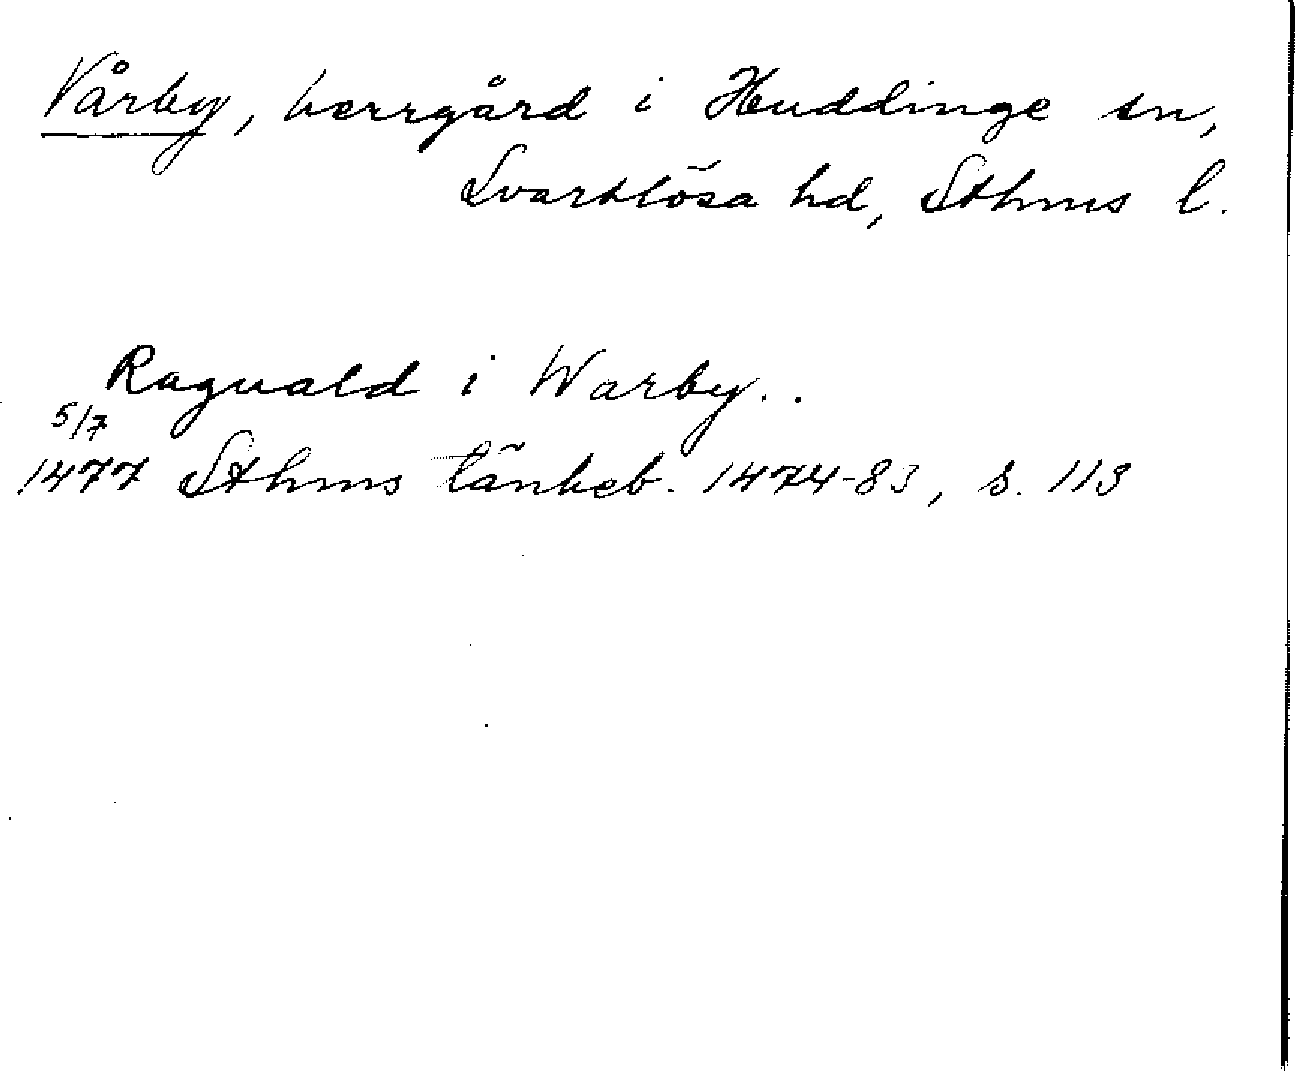 Vårby, herrgård i Huddinge sn,
Svartlösa hd, Sthms l.
Raguald i Warby..
5/7
1477 Sthms tänkeb. 1474-83, s. 113